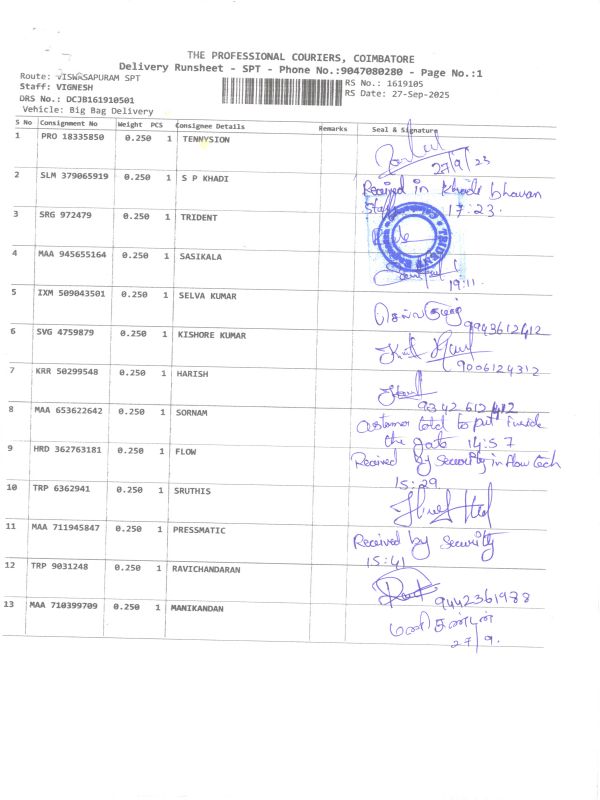 THE PROFESSIONAL COURIERS, COIMBATORE
Delivery Runsheet - SPT - Phone No.:9047080280 - Page No.:1
Route: VISWASAPURAM SPT
Staff: VIGNESH
DRS No.: DCJB161910501
Vehicle: Big Bag Delivery
RS No.: 1619105
RS Date: 27-Sep-2025
S No Consignment No Weight PCS Consignee Details Remarks Seal & Signature
1 PRO 18335850 0.250 1 TENNYSION
27/9/23
2 SLM 379065919 0.250 1 S P KHADI Received in Khadi bhavan
17:23.
3 SRG 972479 0.250 1 TRIDENT
TRIDENT
4 MAA 945655164 0.250 1 SASIKALA
19:11.
5 IXM 509043501 0.250 1 SELVA KUMAR செல்வகுமார்
9943612412
6 SVG 4759879 0.250 1 KISHORE KUMAR
9006124312
7 KRR 50299548 0.250 1 HARISH
9342612412
8 MAA 653622642 0.250 1 SORNAM Customer told to put inside
the gate 14:57
9 HRD 362763181 0.250 1 FLOW Received by Security in Flow tech
15:29
10 TRP 6362941 0.250 1 SRUTHIS
11 MAA 711945847 0.250 1 PRESSMATIC Received by Security
15:41
12 TRP 9031248 0.250 1 RAVICHANDARAN
9442361988
13 MAA 710399709 0.250 1 MANIKANDAN மணிகண்டன்
27/9.